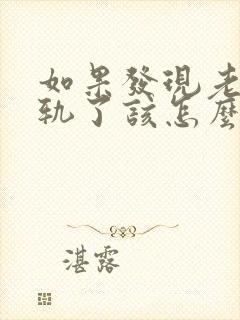 如果發現老
軌了該怎麼
湛露